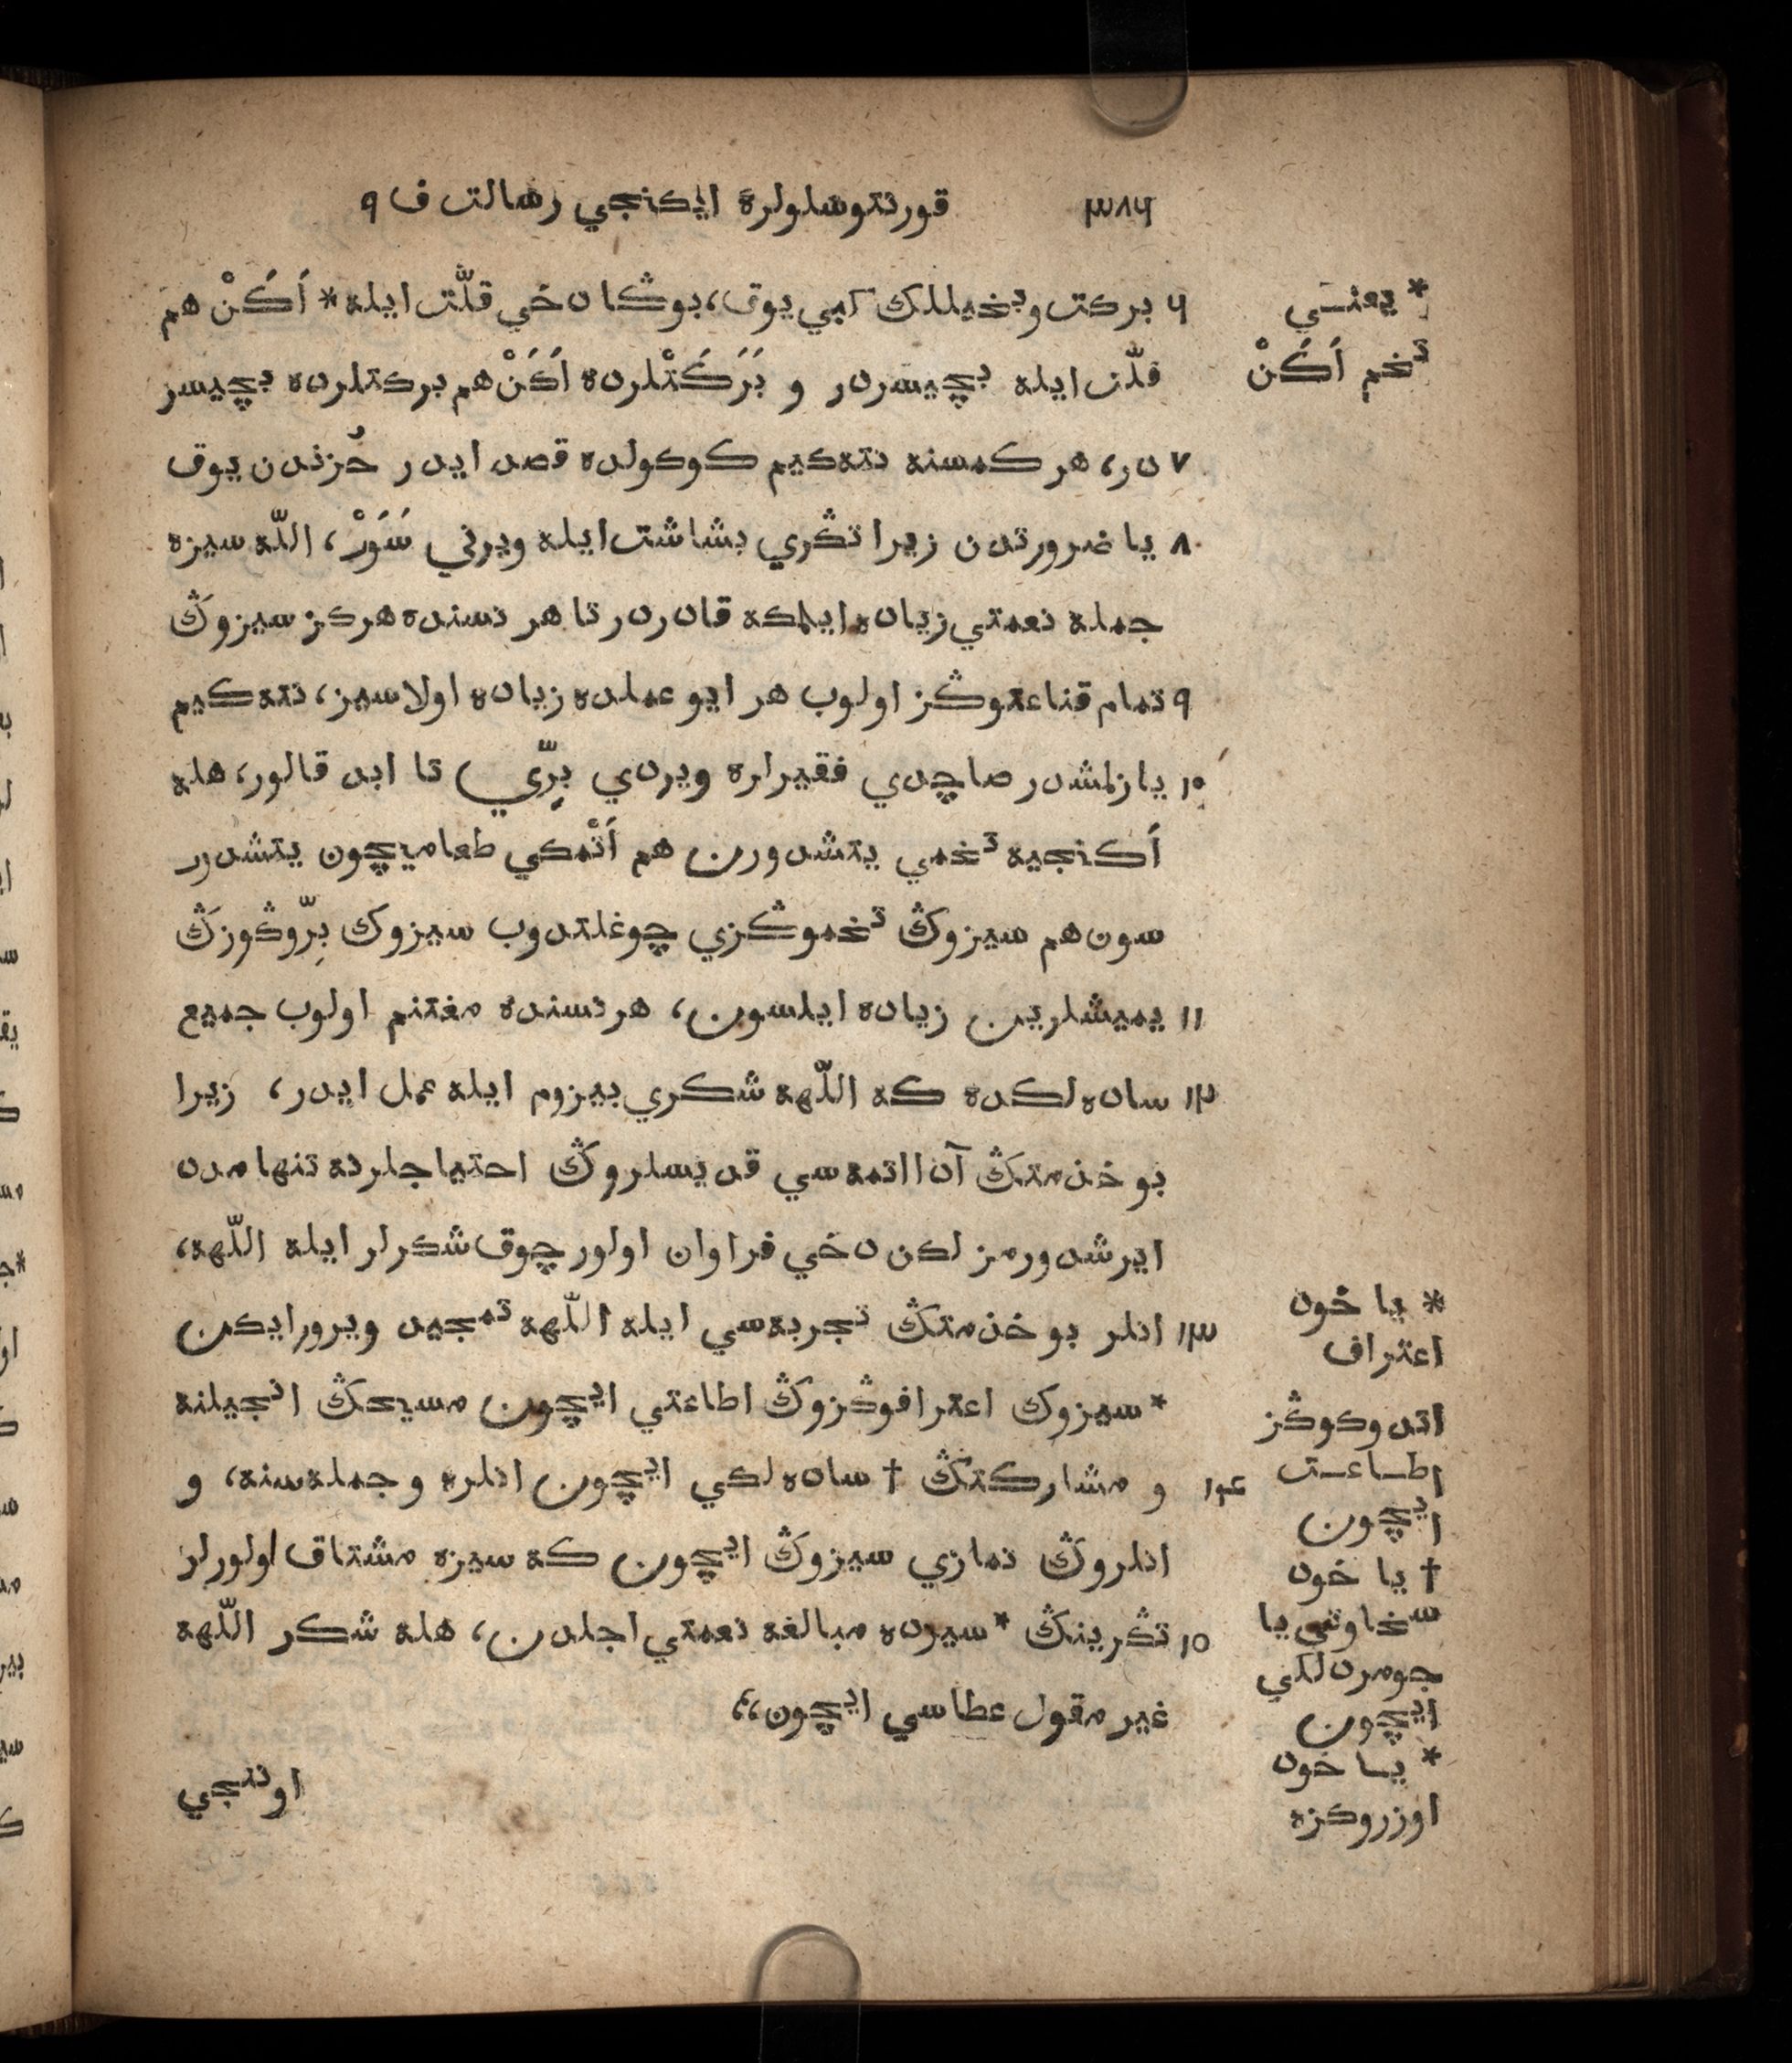 ٣٨٦ قورنتوسلولره ايكنجي رسالت ف ٩
٦ بركت وبخيللك كبي يوق، بوڭا دخي قلّت ايله * اَكَنْ هم
قلّت ايله بچيسردر و بَرَكَتْلرده اَكَنْ هم بركتلرده بچيسر
٧ در، هر كمسنه نتەكيم كوكولده قصد ايدر حُزندن يوق
٨ يا ضرورتدن زيرا تڭري بشاشت ايله ويرني سَوَرْ، اللّه سيزه
جمله نعمتي زياده ايلمكه قادردر تا هر نسنده هركز سيزوڭ
٩ تمام قناعتوڭز اولوب هر ايو عملده زياده اولاسيز، نتەكيم
١٠ يازلمشدر صاچدي فقيرلره ويردي بِرّي تا ابد قالور، هله
اَكنجيه تخمي يتشدورن هم اَتْمكي طعاميچون يتشدور
سون هم سيزوڭ تخموڭزي چوغلتدوب سيزوك بِرّوڭوزڭ
١١ يميشلرين زياده ايلسون، هر نسنده مغتنم اولوب جميع
١٢ ساده لكده كه اللّهه شكري بيزوم ايله عمل ايدر، زيرا
بو خدمتڭ آدا اتمه سي قديسلروڭ احتياجلرنه تنها مدد
ايرشدورمز لكن دخي فراوان اولور چوق شكرلر ايله اللّهه،
١٣ انلر بو خدمتڭ تجربه سي ايله اللّهه تمجيد ويرورايكن
* سيزوك اعترافوڭزوڭ اطاعتي ايچون مسيحڭ انجيلنه
١٤ و مشاركتڭ † ساده لكي ايچون انلره و جمله سنه، و
انلروڭ نمازي سيزوڭ ايچون كه سيزه مشتاق اولورلر
١٥ تڭرينڭ * سيزده مبالغه نعمتي اجلدن، هله شكر اللّهه
غير مقول عطاسي ايچون،،
اوننجي
* يعنـي
تخم اَكَنْ
* يا خود
اعتراف
اتدوكوڭز
اطـاعـت
ايچون
† يا خود
سخاوتي يا
جومردلكي
ايچون
* يـا خود
اوزروكزه